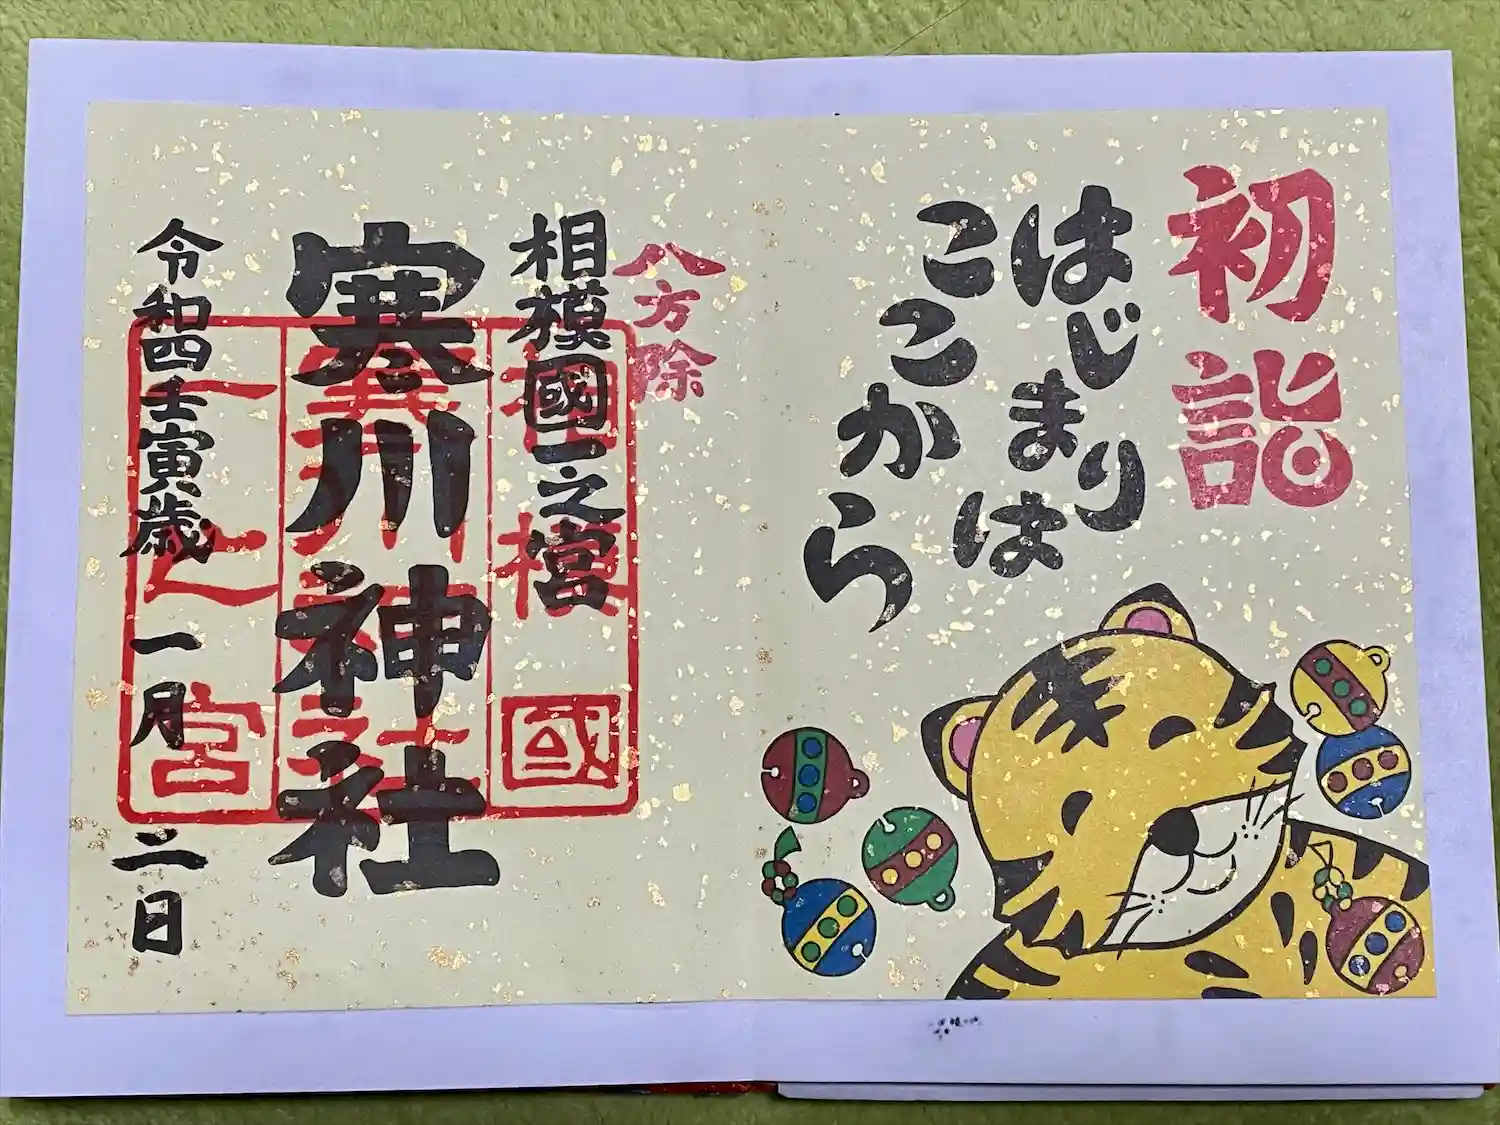 初詣
はじまりは
ここから
八方除
相模國一之宮
寒川神社
令和四壬寅歳 一月 二日
相模國
寒川神社
一之宮